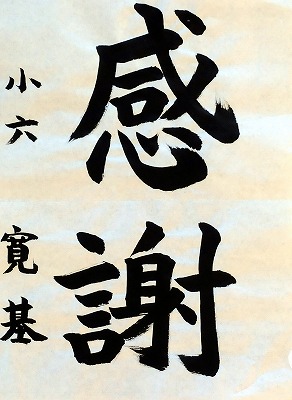 感謝
小六 寛基